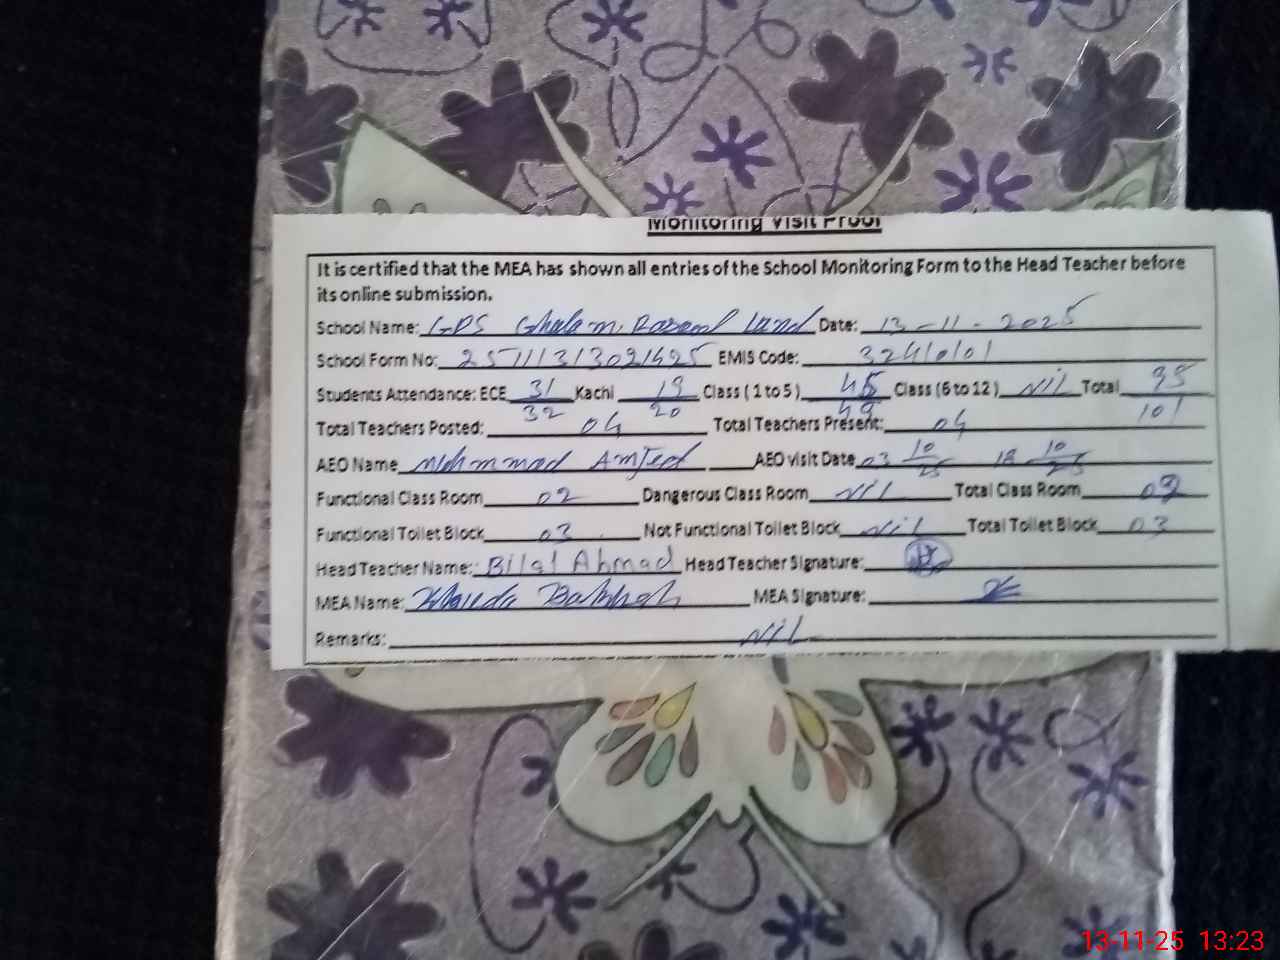 Monitoring Visit Proof
It is certified that the MEA has shown all entries of the School Monitoring Form to the Head Teacher before
its online submission.
School Name: GPS Ghulam Rasool Lund Date: 13-11-2025
School Form No: EMIS Code:
Students Attendance: ECE 31 Kachi 19 Class (1 to 5) 45 Class (6 to 12) Nil Total 95
32 20 49 101
Total Teachers Posted: 04 Total Teachers Present: 04
AEO Name Mohammad Amjed AEO visit Date 03 10/25 18 10/25
Functional Class Room 02 Dangerous Class Room Nil Total Class Room 02
Functional Toilet Block 03 Not Functional Toilet Block Nil Total Toilet Block 03
Head Teacher Name: Bilal Ahmad Head Teacher Signature:
MEA Name: MEA Signature:
Remarks: Nil
13-11-25 13:23